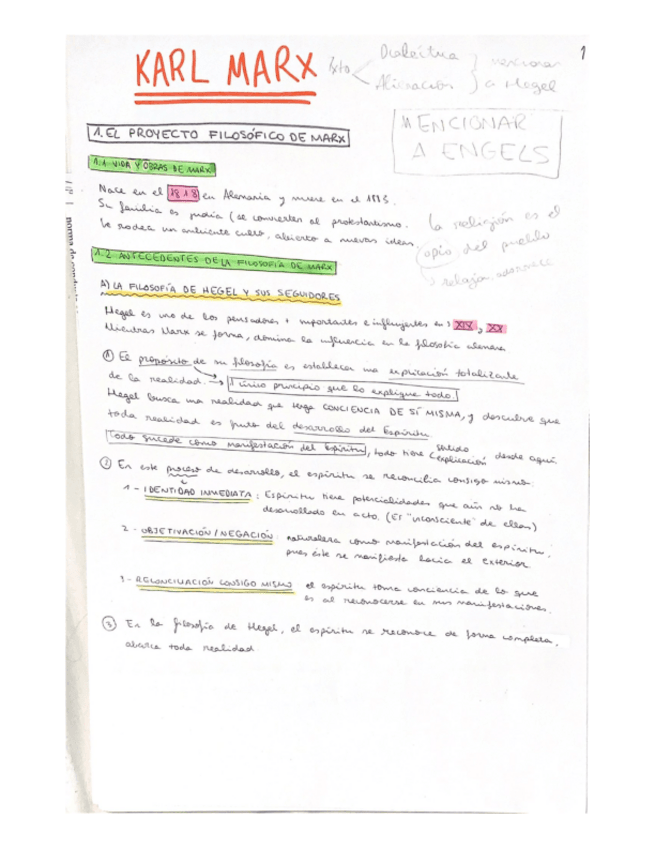 KARL MARX
Dialéctica
Alienación
a Hegel
1
MENCIONAR
A ENGELS
1. EL PROYECTO FILOSÓFICO DE MARX
1.1 VIDA Y OBRAS DE MARX
Nace en el 1818 en Alemania y muere en el 1883.
Su familia es judía (se convierten al protestantismo.
Le rodea un ambiente culto, abierto a nuevas ideas.
La religión es el
opio del pueblo
1.2 ANTECEDENTES DE LA FILOSOFÍA DE MARX
A) LA FILOSOFÍA DE HEGEL Y SUS SEGUIDORES
Hegel es uno de los pensadores + importantes e influyentes en s XIX, XX
Mientras Marx se forma, domina la influencia en la filosofía alemana
① El propósito de su filosofía es establecer una explicación totalizante
de la realidad. → 1 único principio que lo explique todo.
Hegel busca una realidad que tenga CONCIENCIA DE SÍ MISMA, y descubre que
toda realidad es fruto del desarrollo del Espíritu
Todo sucede como manifestación del Espíritu, todo tiene sentido explicación desde aquí
② En este proceso de desarrollo, el espíritu se reconcilia consigo mismo:
1 - IDENTIDAD INMEDIATA: Espíritu tiene potencialidades que aún no ha
desarrollado en acto. (Es "inconsciente" de ellas)
2 - OBJETIVACIÓN / NEGACIÓN: naturaleza como manifestación del espíritu,
pues éste se manifiesta hacia el exterior
3 - RECONCILIACIÓN CONSIGO MISMO el espíritu toma conciencia de lo que
es al reconocerse en sus manifestaciones.
③ En la filosofía de Hegel, el espíritu se reconoce de forma completa,
abarca toda realidad